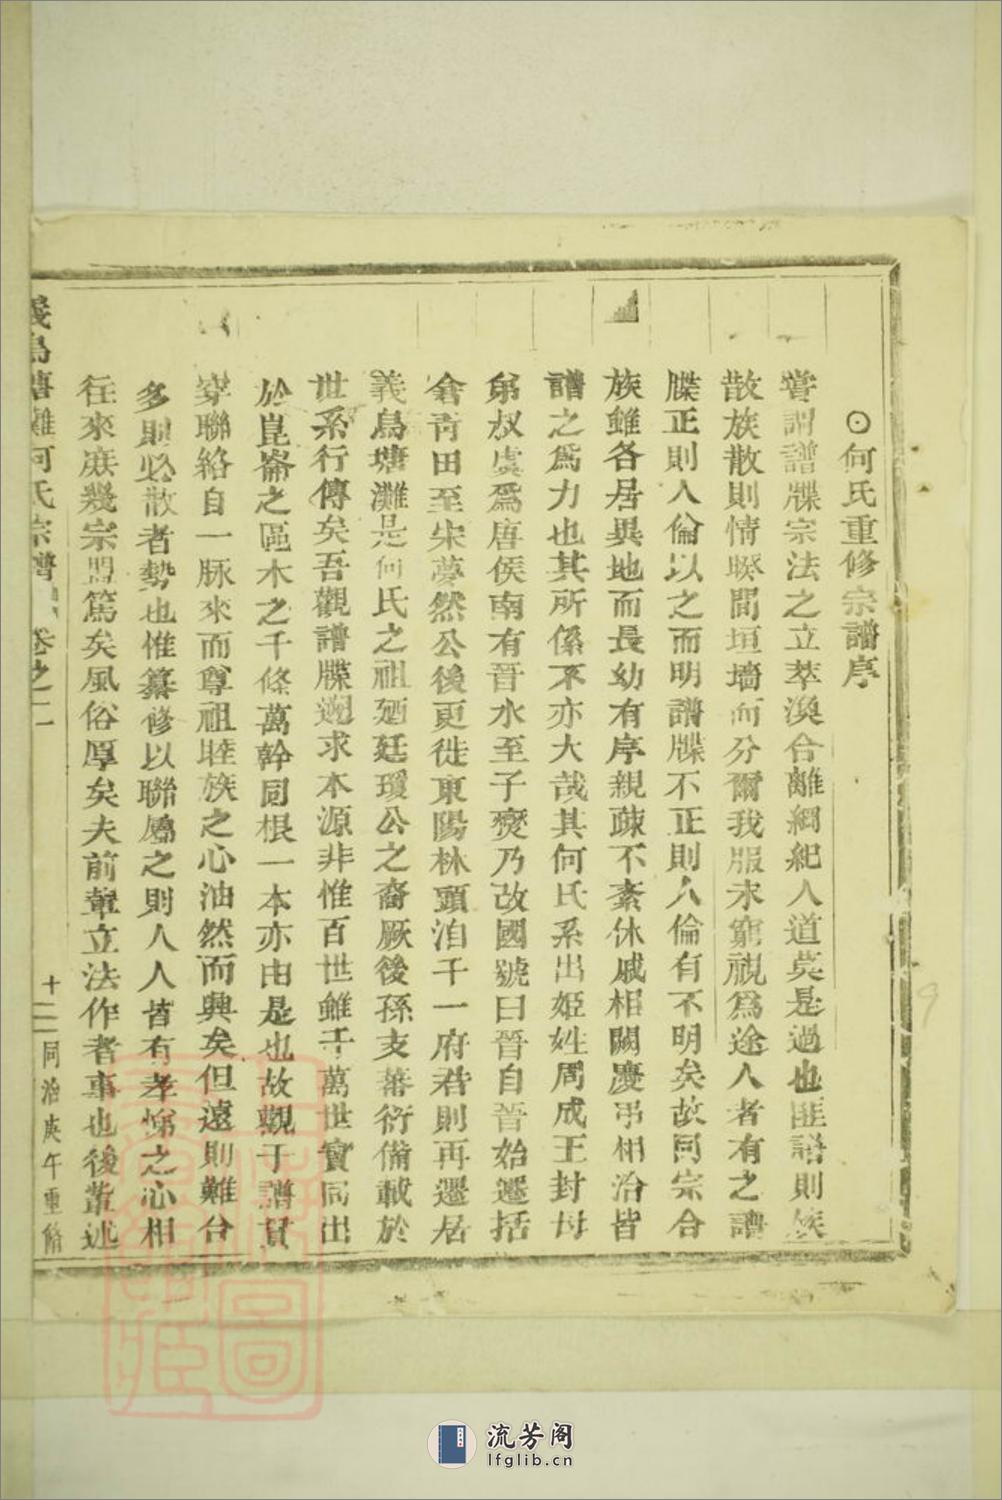 ⊙何氏重修宗譜序
嘗謂譜牒宗法之立萃渙合離綱紀人道莫是過也匪譜則族
散族散則情睽間垣墻而分爾我服未窮視為途人者有之譜
牒正則人倫以之而明譜牒不正則人倫有不明矣故同宗合
族雖各居異地而長幼有序親疎不紊休戚相關慶弔相洽皆
譜之爲力也其所係不亦大哉其何氏系出姬姓周成王封母
弟叔虞爲唐侯南有晉水至子燮乃改國號曰晉自晉始遷括
倉青田至宋夢然公後更徙東陽林頭洎千一府君則再遷居
義烏塘灘是何氏之祖廼廷瓊公之裔厥後孫支蕃衍備載於
世系行傳矣吾觀譜牒遡求本源非惟百世雖千萬世實同出
於崑崙之區木之千條萬幹同根一本亦由是也故觀于譜貫
穿聯絡自一脉來而尊祖睦族之心油然而興矣但遠則難合
多則必散者勢也惟纂修以聯屬之則人人皆有孝悌之心相
往來庶幾宗盟篤矣風俗厚矣夫前輩立法作者事也後輩述
義烏塘灘何氏宗譜 卷之一 十二 同治庚午重脩
流芳阁
lfglib.cn